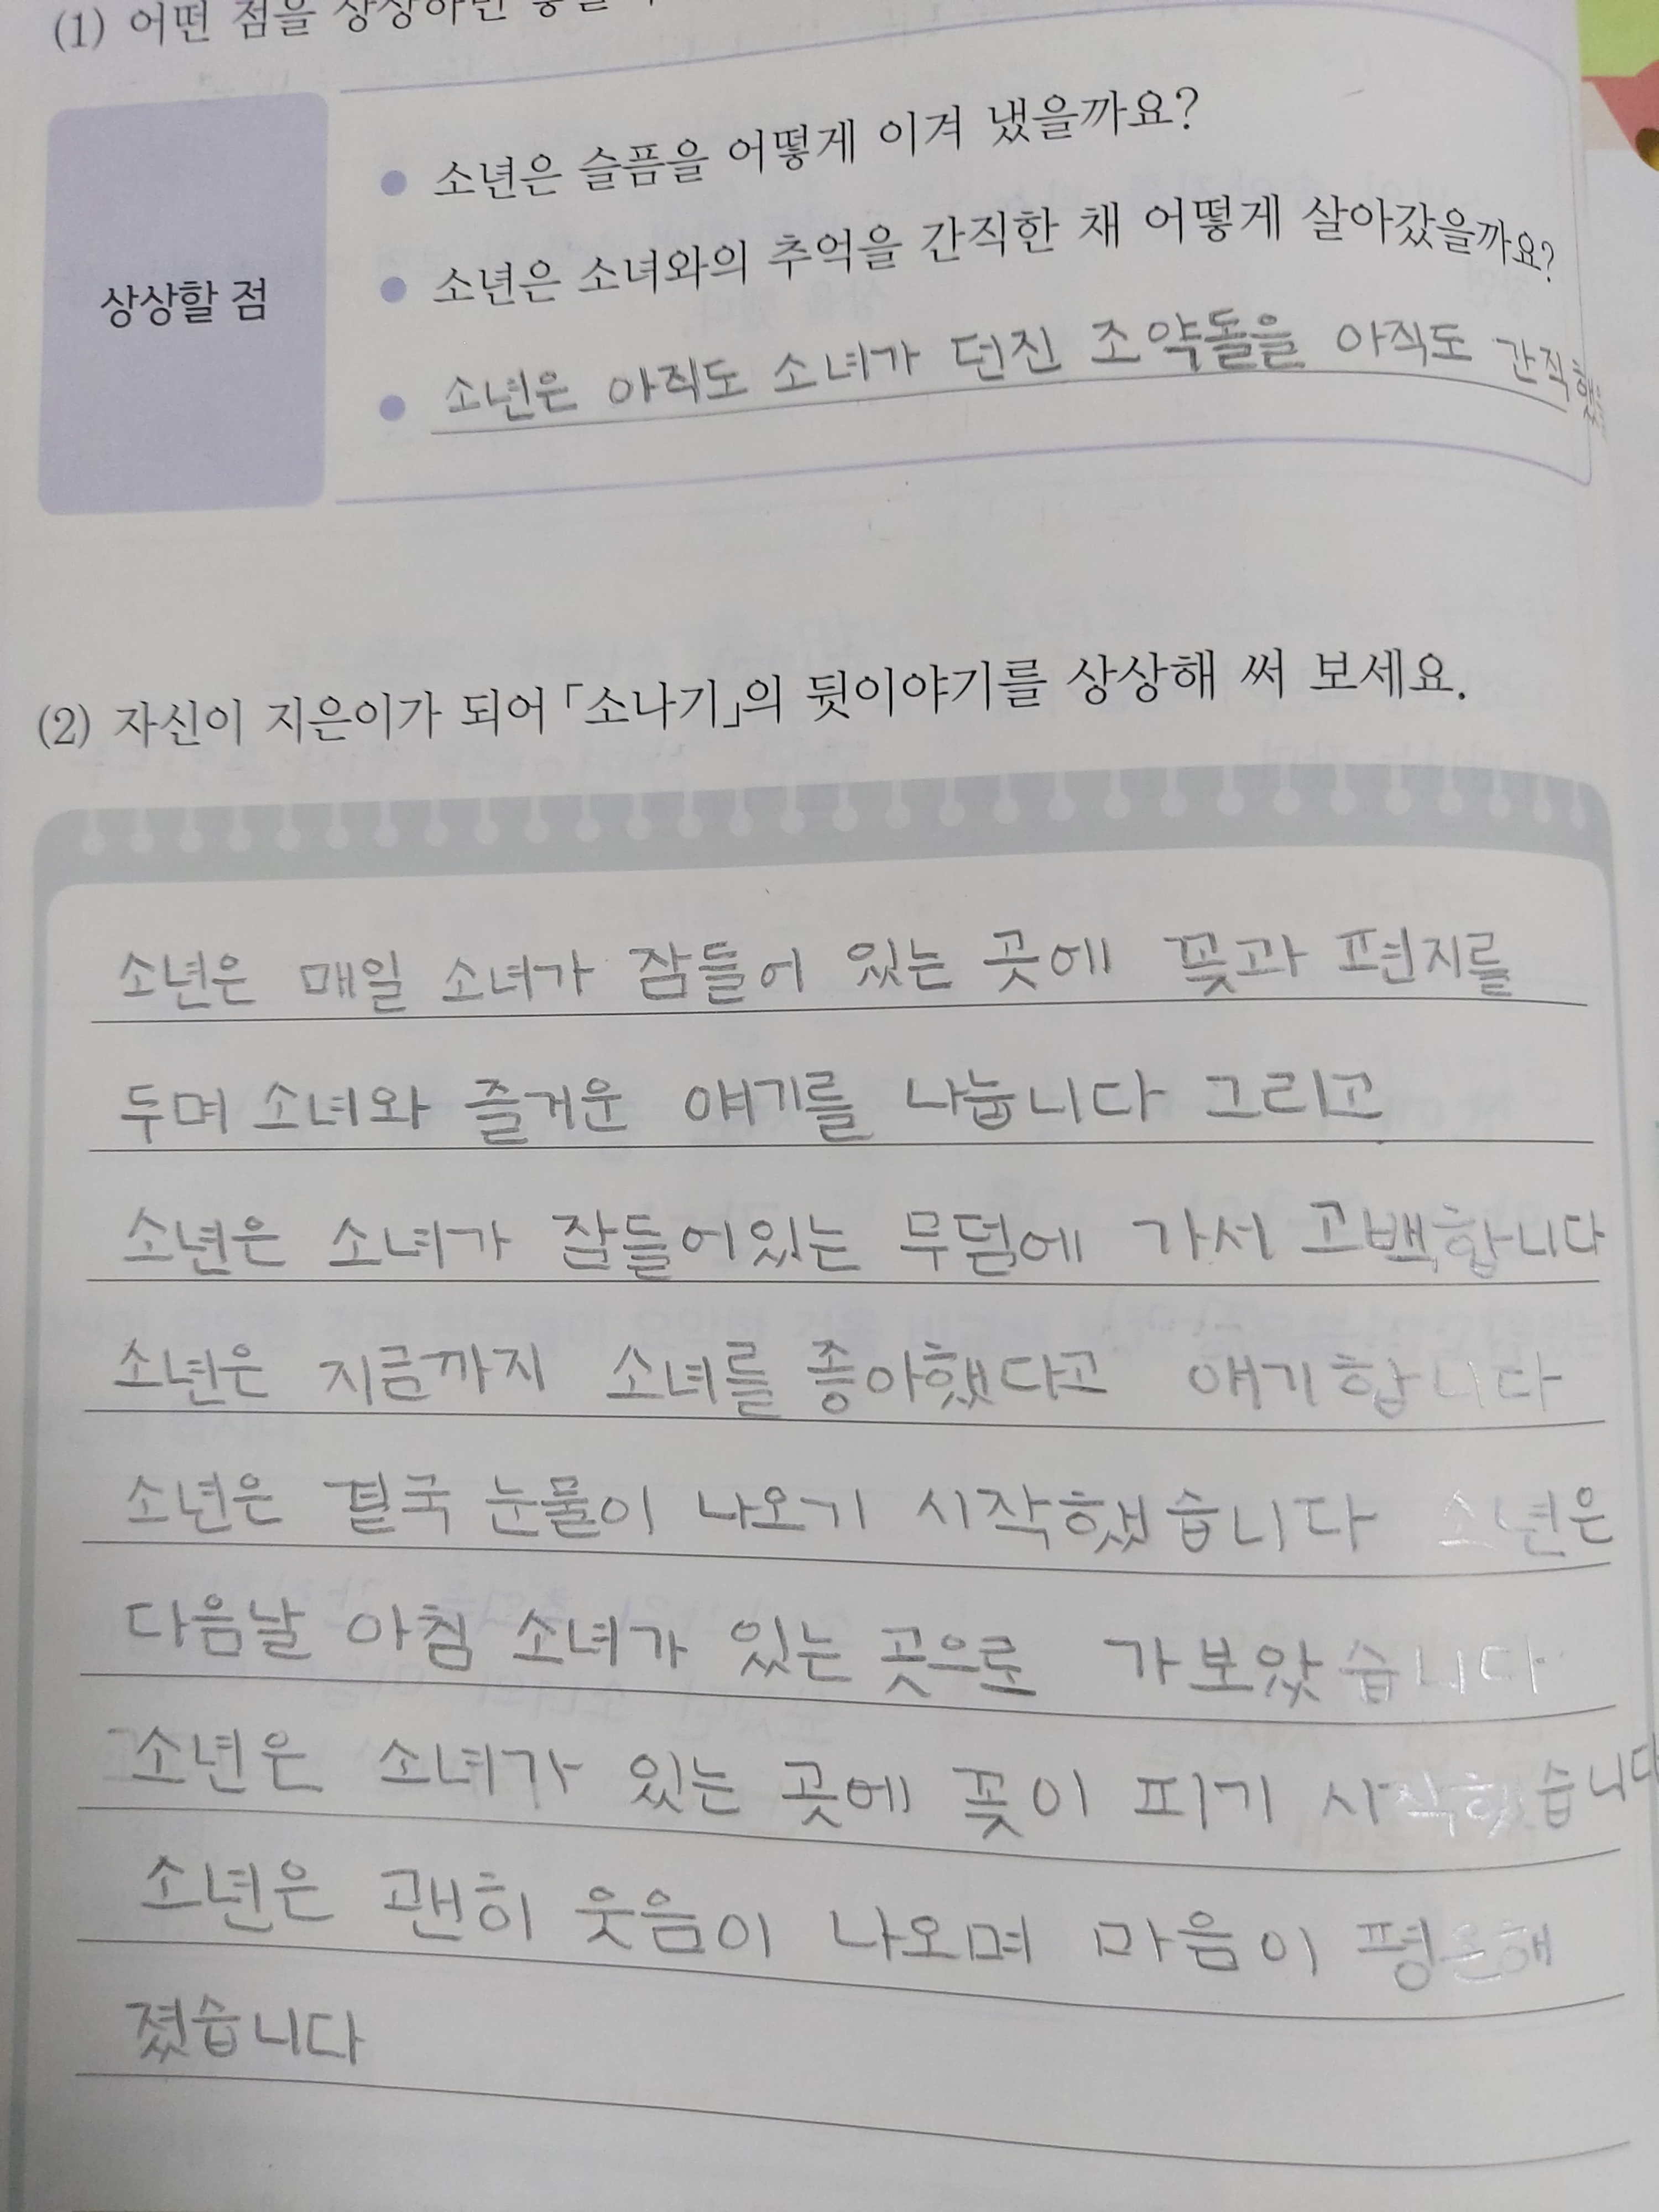 (1) 어떤 점을 상상하면
상상할 점
소년은 슬픔을 어떻게 이겨 냈을까요?
소년은 소녀와의 추억을 간직한 채 어떻게 살아갔을까요?
소년은 아직도 소녀가 던진 조약돌을 아직도
(2) 자신이 지은이가 되어 「소나기」의 뒷이야기를 상상해 써 보세요.
소년은 매일 소녀가 잠들어 있는 곳에 꽃과 편지를
두며 소녀와 즐거운 얘기를 나눕니다 그리고
소년은 소녀가 잠들어있는 무덤에 가서 고백합니다
소년은 지금까지 소녀를 좋아했다고 얘기합니다
소년은 결국 눈물이 나오기 시작했습니다 소년은
다음날 아침 소녀가 있는 곳으로 가보았습니다
소년은 소녀가 있는 곳에 꽃이 피기 시작했습니다
소년은 괜히 웃음이 나오며 마음이 평온해
졌습니다